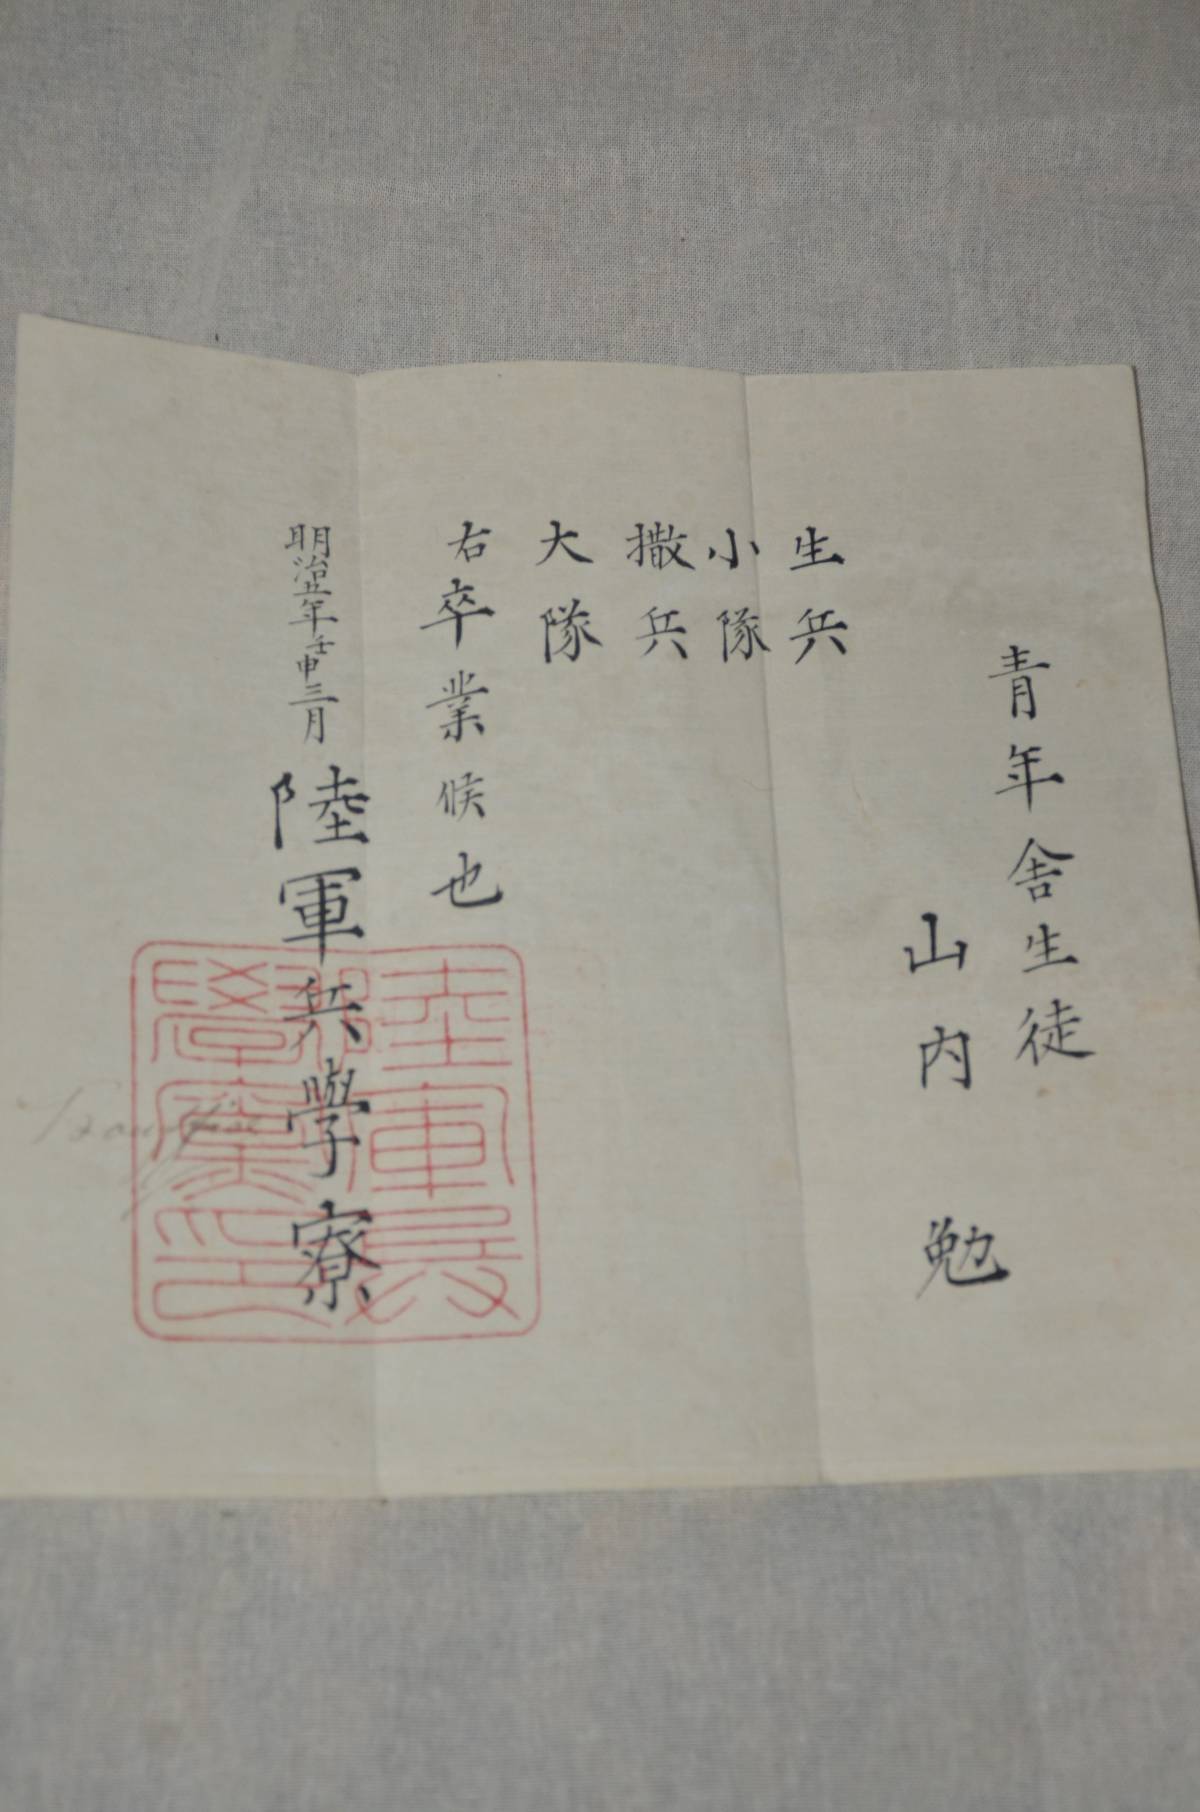 青年舎生徒
山内 勉
生兵
小隊
撒兵
大隊
右卒業候也
明治五年壬申三月 陸軍兵學寮
陸軍兵
學寮印